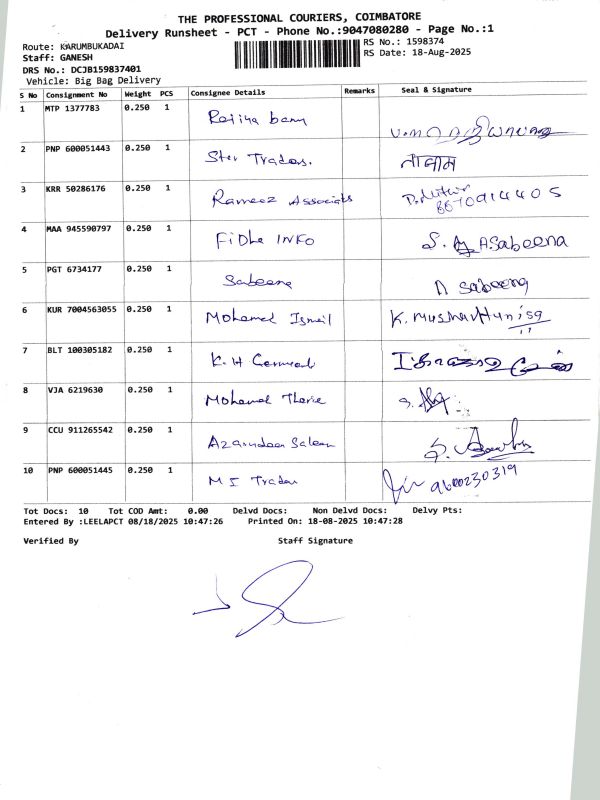 THE PROFESSIONAL COURIERS, COIMBATORE
Delivery Runsheet - PCT - Phone No.:9047080280 - Page No.:1
Route: KARUMBUKADAI
RS No.: 1598374
Staff: GANESH
RS Date: 18-Aug-2025
DRS No.: DCJB159837401
Vehicle: Big Bag Delivery
S No Consignment No Weight PCS Consignee Details Remarks Seal & Signature
1 MTP 1377783 0.250 1 banu
2 PNP 600051443 0.250 1 Star Traders. நிஜாம்
3 KRR 50286176 0.250 1 Rameez Associats
4 MAA 945590797 0.250 1 Fidha INFO S. A. Sabeena
5 PGT 6734177 0.250 1 Sabeena A Sabeena
6 KUR 7004563055 0.250 1 Mohamed Ismail K. Musharthunisa
7 BLT 100305182 0.250 1 K. H
8 VJA 6219630 0.250 1 Mohamed
9 CCU 911265542 0.250 1 Saleem S.
10 PNP 600051445 0.250 1 M I Traders 9600230319
Tot Docs: 10 Tot COD Amt: 0.00 Delvd Docs: Non Delvd Docs: Delvy Pts:
Entered By :LEELAPCT 08/18/2025 10:47:26 Printed On: 18-08-2025 10:47:28
Verified By Staff Signature